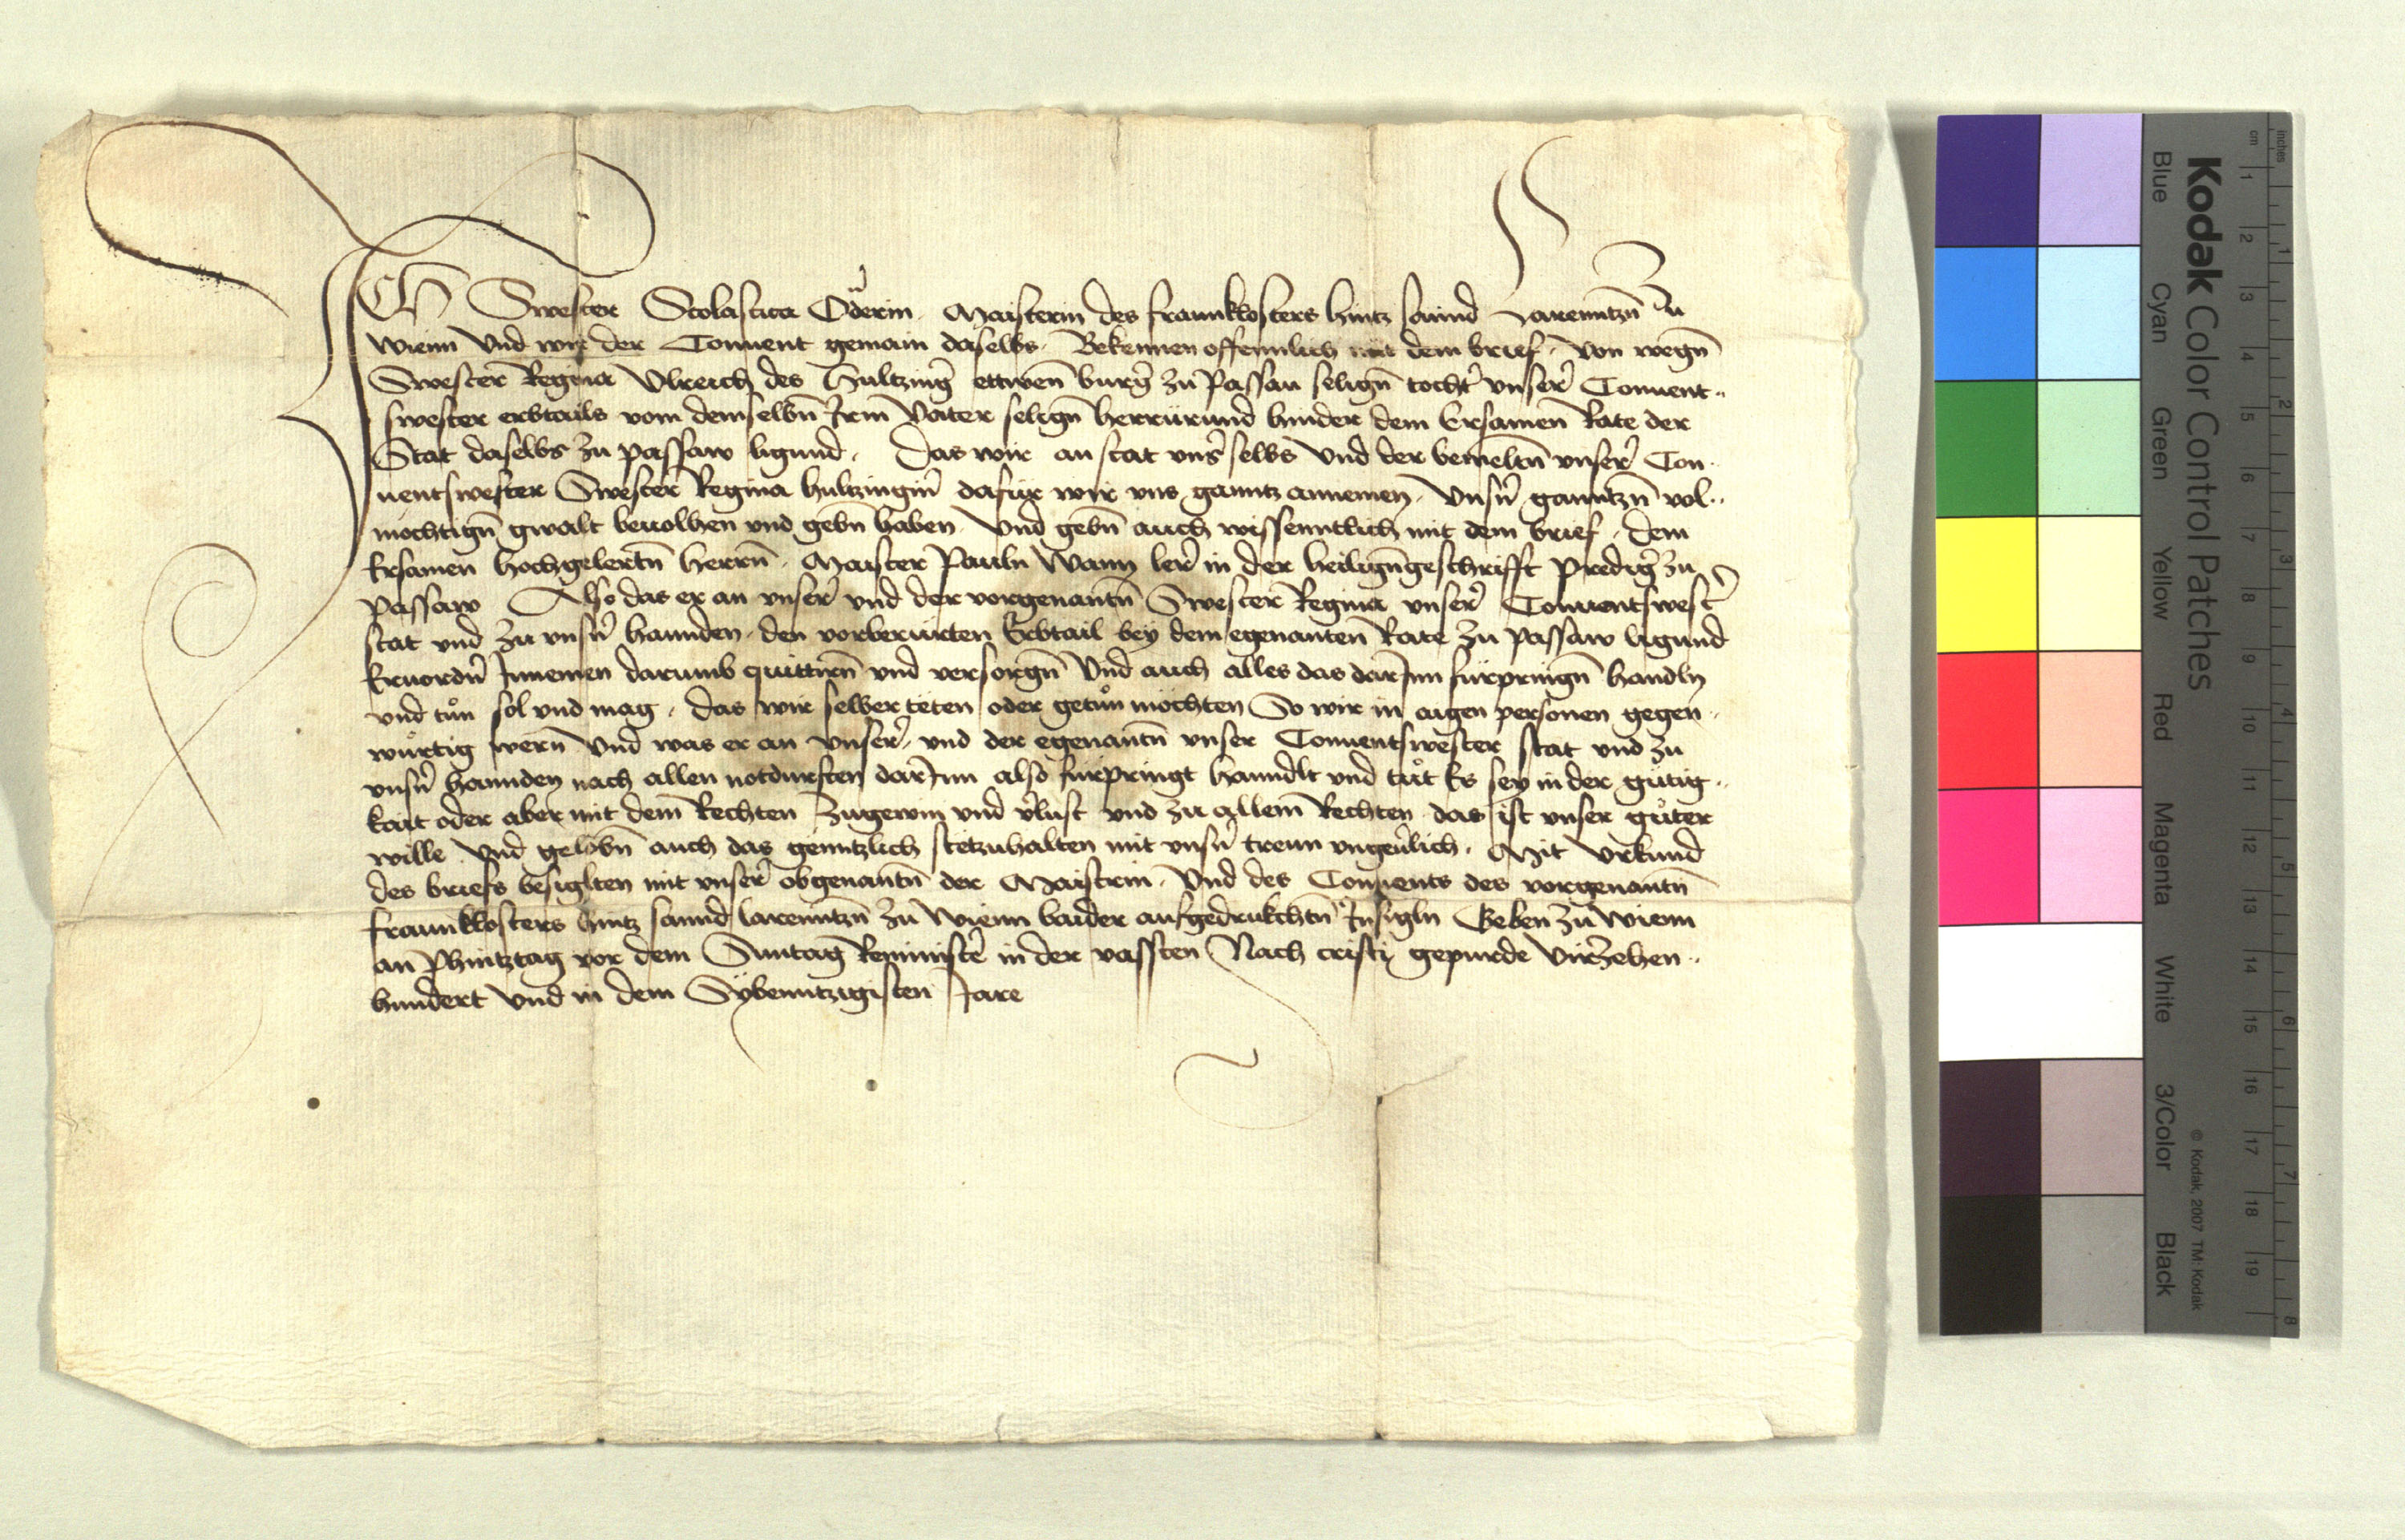 ICh Swester Scolastica Öderin Maisterin des frawnklosters hintz sannd Larenntzn̄ zu
Wienn Vnd wir der Conuent gemain daselbs Bekennen offennlich mit dem brief von wegn̄
Swester Regina Vlreich des Hultzing̓ ettwen̄ burg̓ zu Passau selign̄ tocht̓ vnser̓ Conuent..
swester erbtails vom demselbn̄ Irm̄ Vater selign̄ herrürund hinder dem Ersamen Rate der
Stat daselbs zu passaw ligund. Das wir an stat vns̓ selbs Vnd der bemeltn̄ vnser̓ Con..
uentswester Swester Regina hultzingin̓ dafür wir vns ganntz annemen. Vnsn̓ ganntzn̄ vol..
möchtign̄ gwalt beuolhen vnd gebn̄ haben Vnd gebn̄ auch wissenntlich mit dem brief. dem
Ersamen hochgelertn̄ herrn̄. Maister Pauln Wann ler̓ in der heilign̄geschrifft Predig̓ zu
passaw Also das er an vnser̓ vnd der vorgenantn̄ Swester Regina vnser̓ Conuentswest̓
stat vnd zu vnsn̓ hannden den vorberürten Erbtail bey dem egenanten Rate zu passaw ligund
Eruordn̓ Innemen darumb quittirn̄ vnd versorgn̄ Vnd auch alles das darInn fürpringn̄ handln
vnd tůn sol vnd mag. das wir selber teten oder getůn möchten So wir in aigen personen gegen..
würtig wern̄ Vnd was er an vnser̓ vnd der egenantn̄ vnser Conuentswester stat vnd zu
vnsn̓ hannden nach allen notdurften darInn also fürpringt hanndlt vnd tůt Es sey in der gütig..
kait oder aber mit dem Rechten zugewin vnd v̓lust vnd zu allem Rechten das ist vnser gůter
wille. Vnd gelobn̄ auch das genntzlich stetzuhalten mit vnsn̓ trewn vngeu̓lich. Mit Vrkund
des briefs besiglten mit vnser̓ obgenantn̄ der Maistrin. Vnd des Conuents des vorgenantn̄
frawnklosters hintz sannd larenntzn̄ zu Wienn baider aufgedrukchtn̄ Insigln Geben zu Wienn
an Phintztag vor dem Sunntag Reminisce̓ in der vassten Nach cristi gepurde Vierzehen..
hundert Vnd in dem Sybenntzigisten Jare
Kodak Color Control Patches
Blue Cyan Green Yellow Red Magenta White 3/Color Black
© Kodak, 2007 TM: Kodak
inches 1 2 3 4 5 6 7 8
cm 1 2 3 4 5 6 7 8 9 10 11 12 13 14 15 16 17 18 19